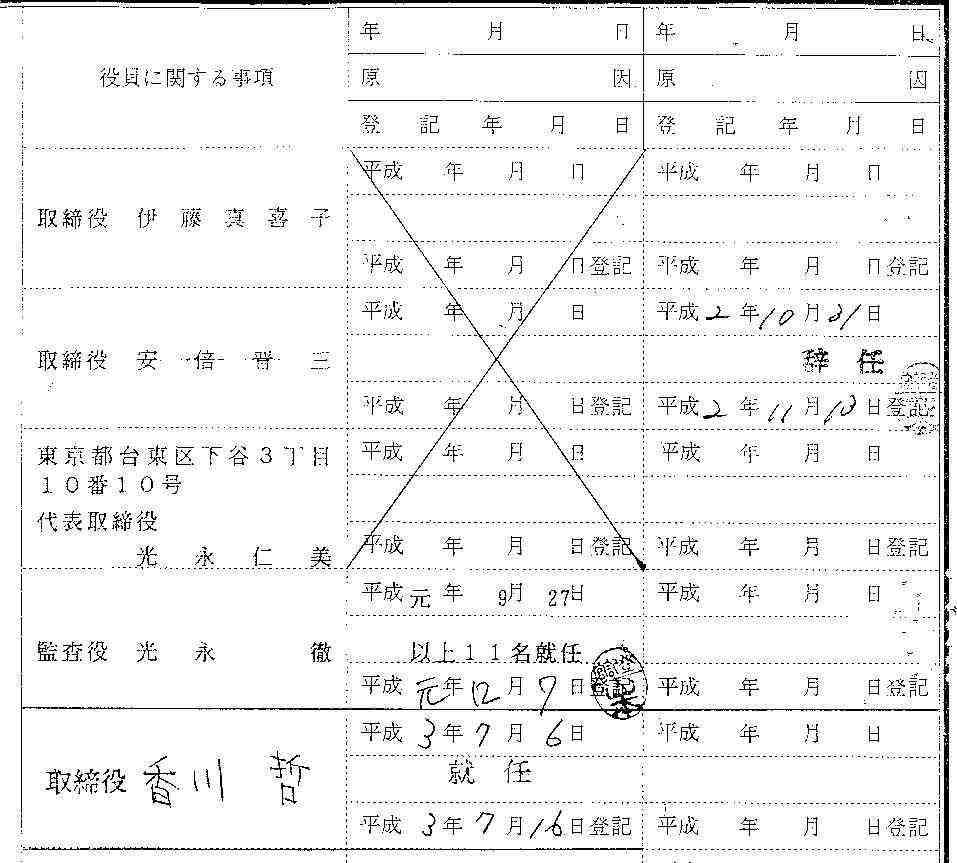 役員に関する事項
年 月 日 年 月 日
原 因 原 因
登 記 年 月 日 登 記 年 月 日
平成 年 月 日 平成 年 月 日
取締役 伊 藤 真 喜 子
平成 年 月 日登記 平成 年 月 日登記
平成 年 月 日 平成 2 年 10 月 31 日
取締役 安 倍 晋 三
辞 任
平成 年 月 日登記 平成 2 年 11 月 13 日登記
東京都台東区下谷3丁目
10番10号
平成 年 月 日 平成 年 月 日
代表取締役
光 永 仁 美
平成 年 月 日登記 平成 年 月 日登記
平成 元 年 9月 27日 平成 年 月 日
監査役 光 永 徹
以上11名就任
平成 元年 12 月 7 日登記 平成 年 月 日登記
平成 3年 7 月 6 日 平成 年 月 日
取締役 香川 哲
就 任
平成 3年 7 月 16 日登記 平成 年 月 日登記